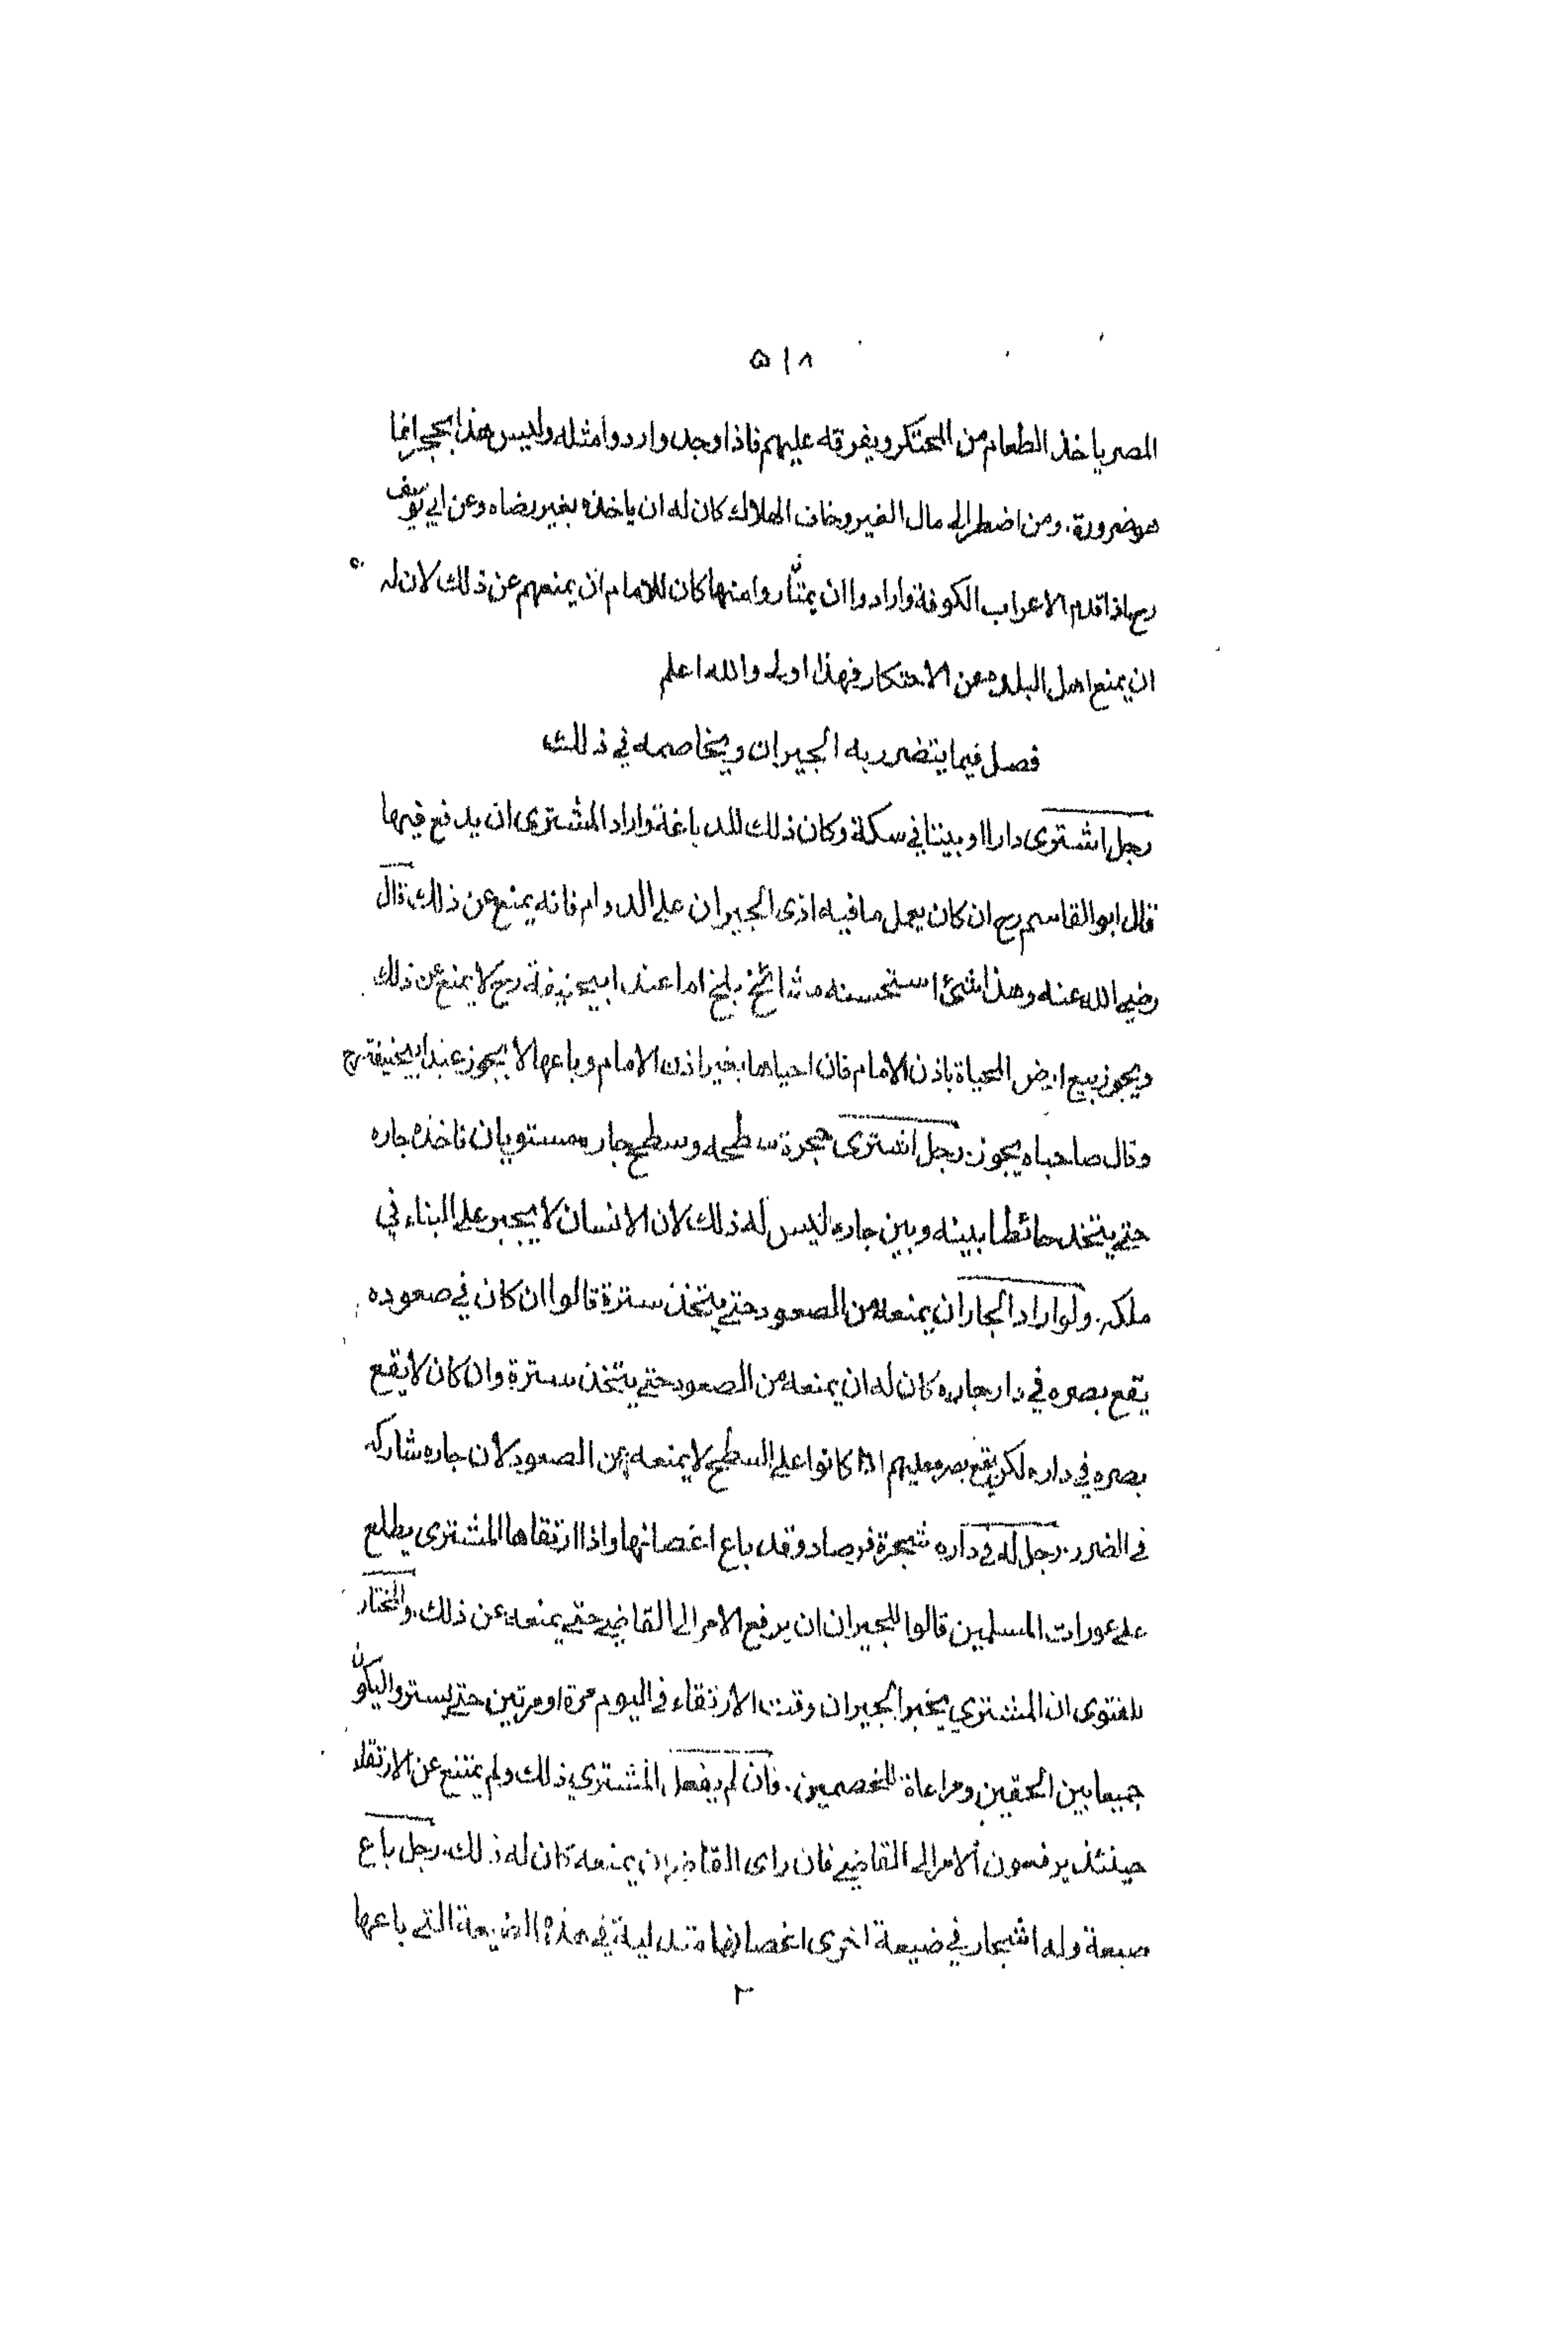 ۵۱۸
المصر ياخذ الطعام من المحتكر ويفرقه عليهم فاذا وجدوا ردوا مثله وليس هذا بحجر انما
هو ضرورة. ومن اضطر الى مال الغير وخاف الهلاك كان له ان ياخذه بغير رضاه وعن ابي يوسف
رح اذا قدم الاعراب الكوفة وارادوا ان يمتاروا منها كان للامام ان يمنعهم عن ذلك لان له
ان يمنع اهل البلدة عن الاحتكار فهذا اولى والله اعلم
فصل فيما يتضرر به الجيران ويخاصمه في ذلك
رجل اشترى دارا او بيتا في سكة وكان ذلك للدباغة واراد المشترى ان يدفع فيها
قال ابو القاسم رح ان كان يعمل ما فيه اذى الجيران على الدوام فانه يمنع عن ذلك قال
رضي الله عنه وهذا شئ استحسنه مشائخ بلخ اما عند ابيحنيفة رح لا يمنع عن ذلك
ويجوز بيع ارض المحياة باذن الامام فان احياها بغير اذن الامام وباعها لا يجوز عند ابيحنيفة رح
وقال صاحباه يجوز. رجل اشترى حجرة سطحه وسطح جاره مستويان فاخذه جاره
حتى يتخذ حائطا بينه وبين جاره ليس له ذلك لان الانسان لا يجبر على البناء في
ملكه. ولو اراد الجار ان يمنعه من الصعود حتى يتخذ سترة قالوا ان كان في صعوده
يقع بصره في دار جاره كان له ان يمنعه من الصعود حتى يتخذ سترة وان كان لا يقع
بصره في داره لكن يقع بصره عليهم اذا كانوا على السطح لا يمنعه من الصعود لان جاره شاركه
في الضرر. رجل له في داره شجرة فرصاد وقد باع اغصانها واذا ارتقاها المشترى يطلع
على عورات المسلمين قالوا للجيران ان يرفع الامر الى القاضي حتى يمنعه عن ذلك. والمختار
للفتوى ان المشتري يخبر الجيران وقت الارتقاء في اليوم مرة او مرتين حتى يستروا ليكون
جميعا بين الحقين ومراعاة للخصمين. فان لم يفعل المشتري ذلك ولم يمتنع عن الارتقاء
حينئذ يرفعون الامر الى القاضي فان راى القاضي ان يمنعه كان له ذلك. رجل باع
صبعة وله اشجار في ضيعة اخرى اغصانها متدلية في هذه الضيعة التي باعها
٢